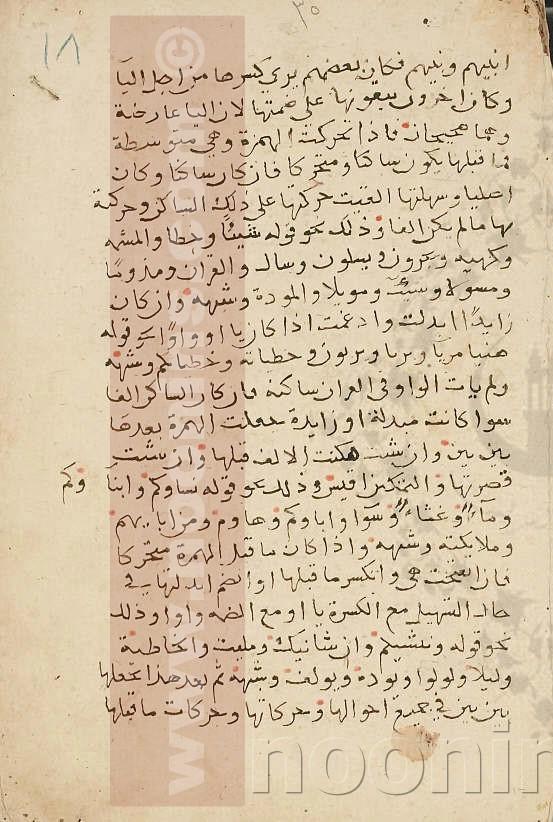 ٣٥
١٨
انبيهم ونبيهم فكان بعضهم يرى كسرها من اجل اليا
وكان اخرون يبقونها على ضمتها لان اليا عارضة
وهما صحيحان فاذا تحركت الهمزة وهي متوسطة
فما قبلها يكون ساكنا ومتحركا فان كان ساكنا وكان
اصليا وسهلتها القيت حركتها على ذلك الساكن وحركته
بها ما لم يكن الفا وذلك نحو قوله شيئا وخطا والمشمه
وكهيه ويجرون ويسلون وسال والقران ومذوما
ومسولا وسيت ومويلا والمودة وشبهه وان كان
زايدا ابدلت وادغمت اذا كان يا او واوا نحو قوله
هنيا مريا وبريا وبريون وخطياته وخطياتكم وشبهه
ولم يات الواو في القران ساكنة فان كان الساكن الفا
سوا كانت مبدلة او زايدة جعلت الهمزة بعدها
بين بين وان شيت مكنت الالف قبلها وان شيت
قصرتها والتمكين اقيس وذلك نحو قوله نساوكم وابناوكم
وماء وغثاء وسوا واباوكم وهاوم ومن ابايهم
وملايكته وشبهه واذا كان ما قبل الهمزة متحركا
فان انفتحت هي وانكسر ما قبلها او انضم ابدلتها في
حال التسهيل مع الكسرة يا ومع الضمه واوا وذلك
نحو قوله وننشيكم وان شانيك ومليت والخاطية
وليلا ولولوا ويوده ويولف وشبهه ثم بعد هذا تجعلها
بين بين في جميع احوالها وحركاتها وحركات ما قبلها
www.
©
noonin